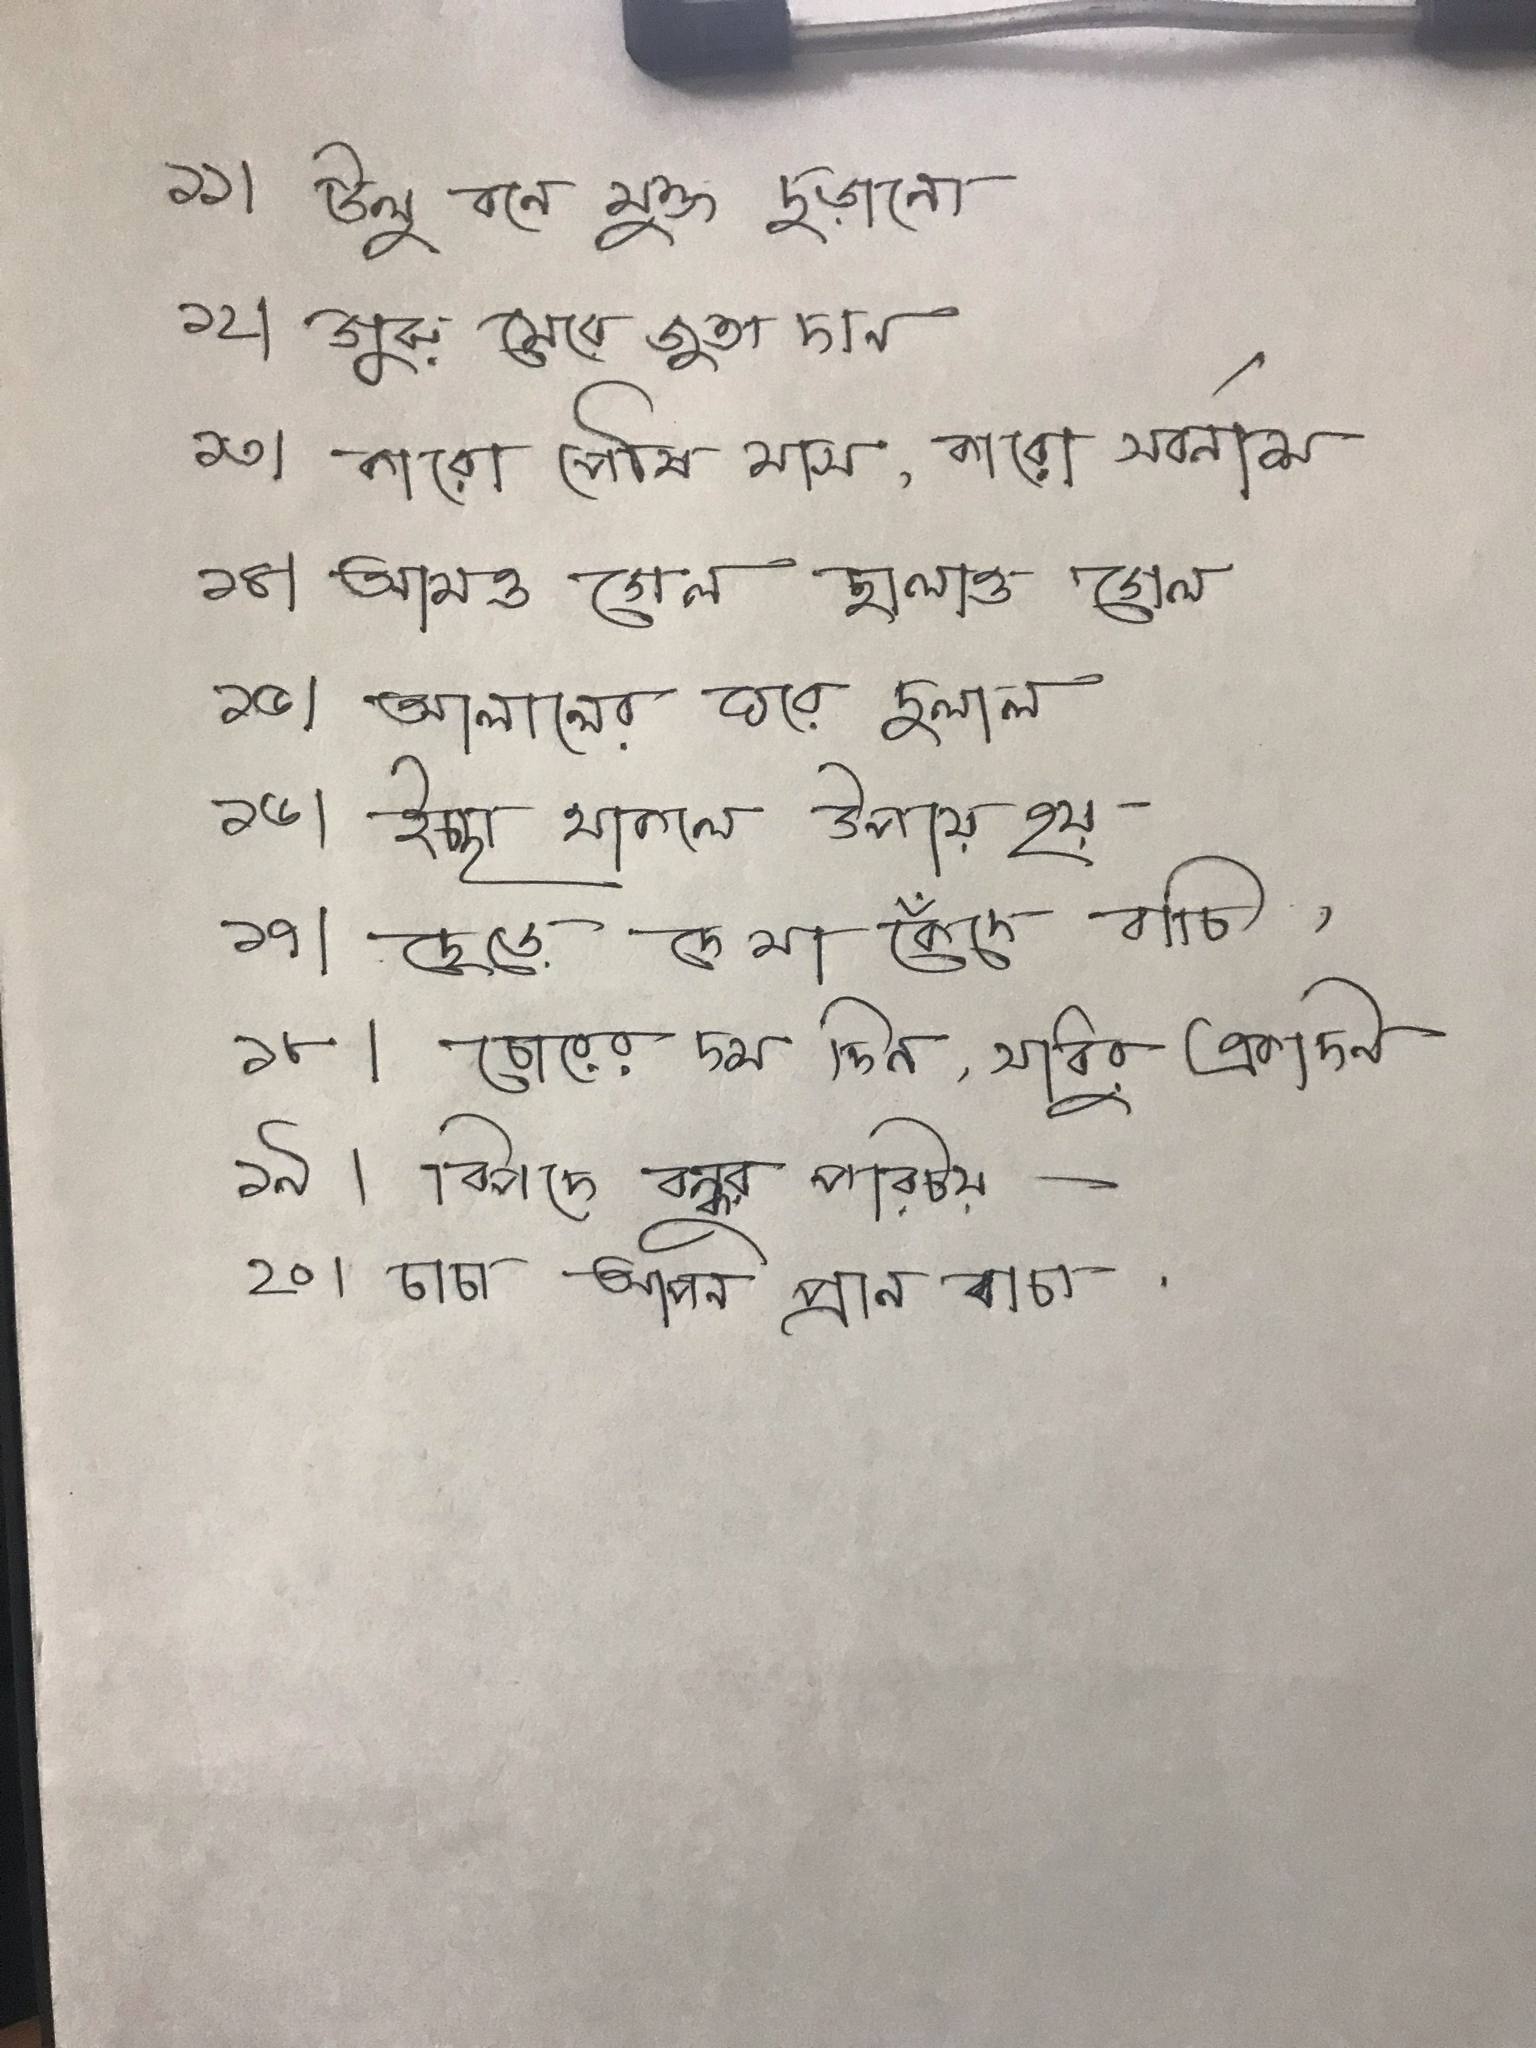 ১১। উলু বনে মুক্ত ছড়ানো
১২। গুরু মেরে জুতা দান
১৩। কারো পৌষ মাস, কারো সবর্নাশ
১৪। আমও গেল ছালাও গেল
১৫। আলালের ঘরে দুলাল
১৬। ইচ্ছা থাকলে উপায় হয়
১৭। ছেড়ে দে মা কেঁদে বাচি,
১৮। চোরের দশ দিন, সাধুর একদিন
১৯। বিপদে বন্ধুর পরিচয়
২০। চাচা আপন প্রান বাচা.